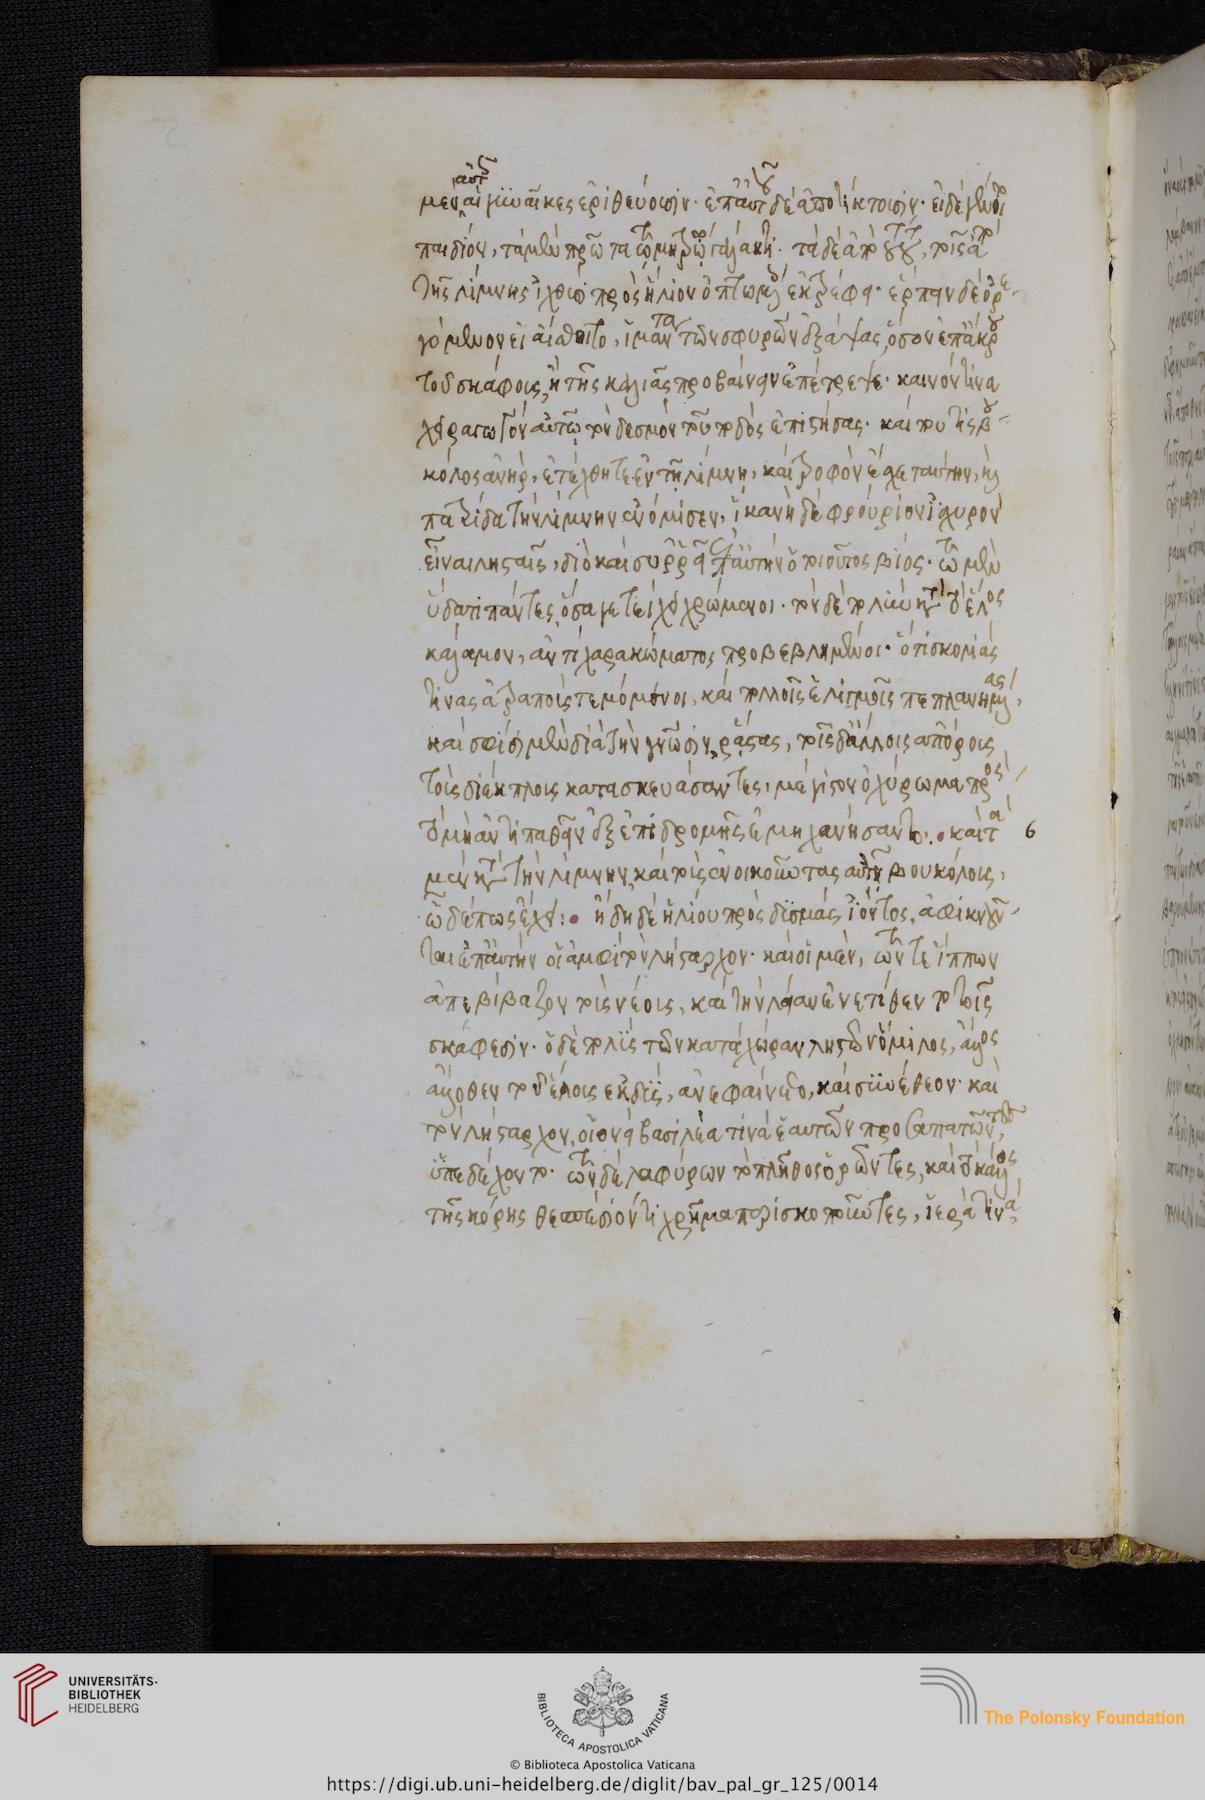 μὲν αὐτοῖς αἱ γυναῖκες ἐριθεύουσιν· ἐπ' αὐτοῦ δὲ ἀποτίκτουσιν· εἰ δὲ γένοιτο
παιδίον, τὰ μὲν πρῶτα τῷ μητρῴῳ γάλακτι· τὰ δὲ ἀπὸ τούτου, τοῖς ἀπὸ
τῆς λίμνης ἰχθύσι πρὸς ἥλιον ὀπτωμένοις ἐκτρέφει· ἕρπειν δὲ ὀρε-
γόμενον εἰ αἴσθοιτο, ἱμάντα τῶν σφυρῶν ἐξάψας, ὅσον ἐπ' ἄκρου
τοῦ σκάφους, ἢ τῆς καλιᾶς προβαίνειν ἐπέτρεψε· καινόν τινα
χειραγωγὸν αὐτῷ τὸν δεσμὸν τοῦ ποδὸς ἐπιστήσας· καί που τὶς βου-
κόλος ἀνὴρ, ἐτέχθη τε ἐν τῇ λίμνῃ, καὶ τροφὸν ἔσχε ταύτην, καὶ
πατρίδα τὴν λίμνην ἐνόμισεν, ἱκανὴ δὲ φρούριον ἰσχυρὸν
εἶναι λῃσταῖς, διὸ καὶ συρρεῖ ἐπ' αὐτὴν ὁ τοιοῦτος βίος· τῷ μὲν
ὕδατι πάντες, ὅσα γε τείχει χρώμενοι· τὸν δὲ πολὺν κατὰ τὸ ἕλος
κάλαμον, ἀντὶ χαρακώματος προβεβλημένοι· ὅτι σκολιάς
τινας ἀτραποὺς τεμόμενοι, καὶ πολλοῖς ἑλιγμοῖς πεπλανημένας,
καὶ σφίσι μὲν διὰ τὴν γνῶσιν, ῥᾴστας, τοῖς δ' ἄλλοις ἀπόρους
τοὺς διέκπλους κατασκευάσαντες, μέγιστον ὀχύρωμα πρὸς
τὸ μὴ ἄν τι παθεῖν ἐξ ἐπιδρομῆς ἐμηχανήσαντο:. καὶ τὰ 6
μὲν κατὰ τὴν λίμνην, καὶ τοὺς ἐνοικοῦντας αὐτῇ βουκόλους,
ὧδέ πως ἔχει:. ἤδη δὲ ἡλίου πρὸς δυσμὰς ἰόντος, ἀφικνοῦν-
ται ἐπ' αὐτὴν οἱ ἀμφὶ τὸν λῄσταρχον· καὶ οἱ μὲν, τῶν τε ἵππων
ἀπεβίβαζον τοὺς νέους, καὶ τὴν λείαν ἐνετίθεντο τοῖς
σκάφεσιν· ὁ δὲ πολὺς τῶν κατὰ χώραν λῃστῶν ὅμιλος, ἄλλος
ἄλλοθεν τοῦ ἕλους ἐκδὺς, ἀνεφαίνετο, καὶ συνέθεον· καὶ
τὸν λῄσταρχον, οἱονεὶ βασιλέα τινὰ ἑαυτῶν προσαπαντῶντες,
ὑπεδέχοντο· τῶν δὲ λαφύρων τὸ πλῆθος ὁρῶντες, καὶ τὸ κάλλος
τῆς κόρης θεσπέσιόν τι χρῆμα περισκοποῦντες, ἱερά τινα,
UNIVERSITÄTS-
BIBLIOTHEK
HEIDELBERG
BIBLIOTECA APOSTOLICA VATICANA
The Polonsky Foundation
© Biblioteca Apostolica Vaticana
https://digi.ub.uni-heidelberg.de/diglit/bav_pal_gr_125/0014